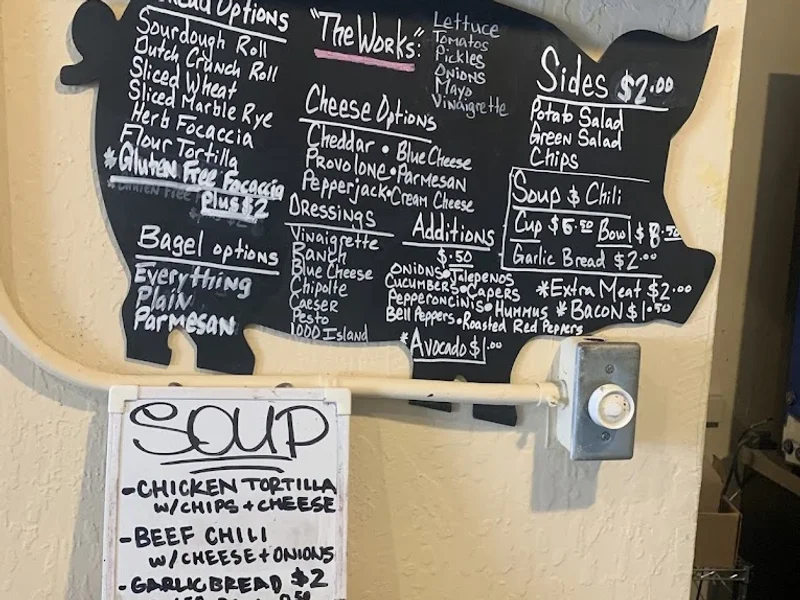 Bread Options
Sourdough Roll
Dutch Crunch Roll
Sliced Wheat
Sliced Marble Rye
Herb Focaccia
Flour Tortilla
*Gluten Free Focaccia
Plus $2
Bagel options
Everything
Plain
Parmesan
"The Works:"
Lettuce
Tomatos
Pickles
Onions
Mayo
Vinaigrette
Cheese Options
Cheddar • Blue Cheese
Provolone • Parmesan
Pepperjack • Cream Cheese
Dressings
Vinaigrette
Ranch
Blue Cheese
Chipolte
Caeser
Pesto
1000 Island
Additions
$.50
Onions • Jalepenos
Cucumbers • Capers
Pepperoncinis • Hummus
Bell Peppers • Roasted Red Peppers
*Avocado $1.00
Sides $2.00
Potato Salad
Green Salad
Chips
Soup & Chili
Cup $6.50 Bowl $8.50
Garlic Bread $2.00
*Extra Meat $2.00
*Bacon $1.50
SOUP
-CHICKEN TORTILLA
W/CHIPS + CHEESE
-BEEF CHILI
W/CHEESE + ONIONS
-GARLIC BREAD $2